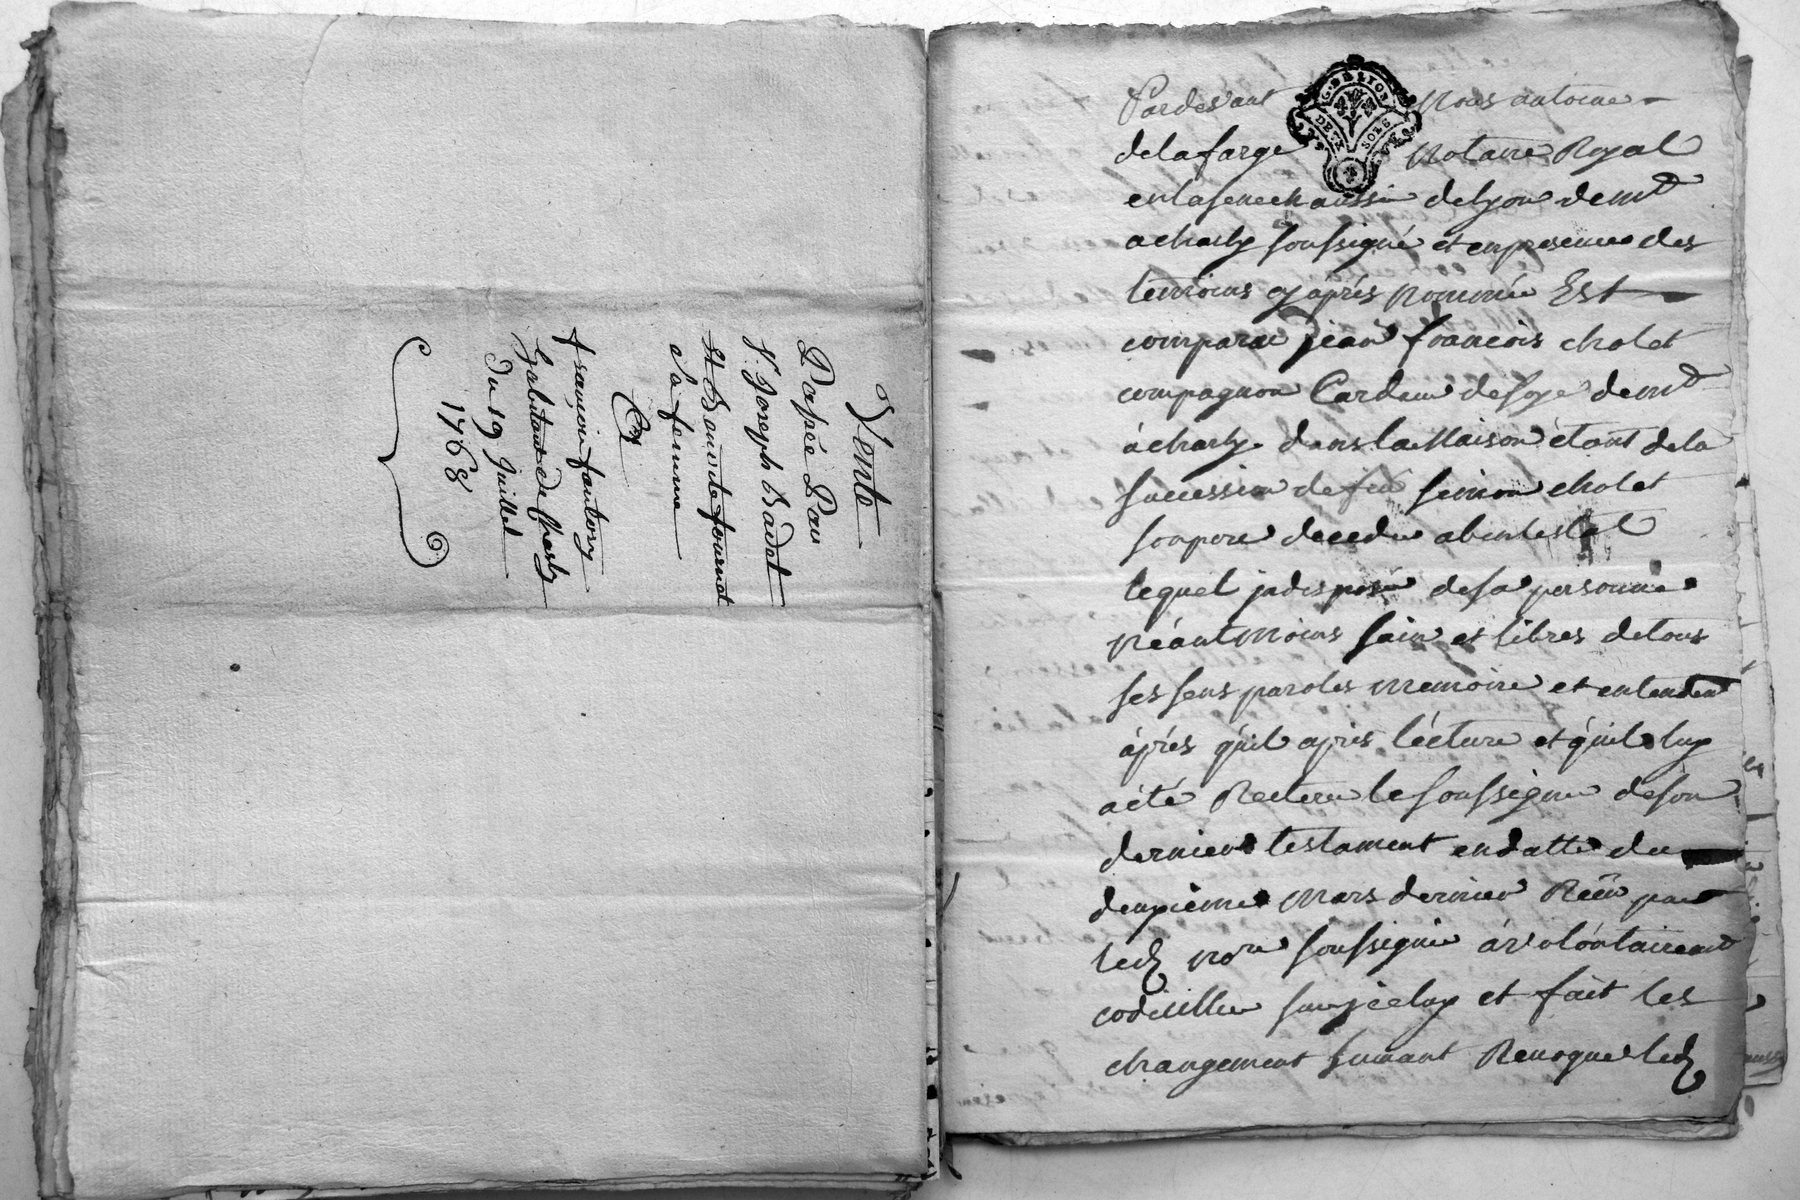 Vente
Passée Par
Sr. Joseph Badet
et Benoite fournat
Sa femme
Et
françois fontosy
habitant de Charly
Du 19 Juillet
1768
G. DE LYON
DEUX SOLS
Pardevant Nous antoine
delafarge Notaire Royal
enlasenechaussée delyon demt
acharly soussigné et enpresence des
temoins cy après nommée Est
comparu jean francois cholet
compagnon Cardeur desoye demt
à charly dans la Maison étant dela
succession de feu simon cholet
son pere decedu abintestat
lequel jndisposé desa personne
néantmoins sain et libres detous
ses sens paroles memoire et entendem
áprés qu'il apris lécture et qu'il luy
aété par le soussigné deson
dernier testament endatte du
deuxieme Mars dernier Reçu par
led nore soussigné a volóntairemt
codicillé sur jceluy et fait les
changement suivant Revoque led